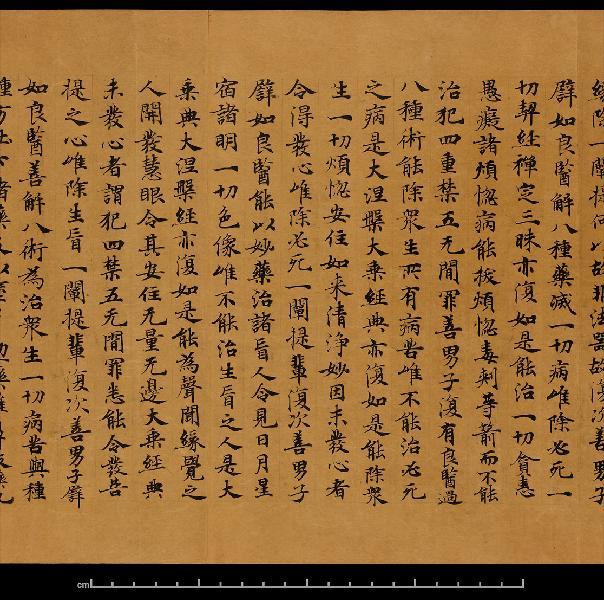 緣除一闡提何以故非法器故復次善男子
譬如良醫解八種藥滅一切病唯除必死一
切契經禪定三昧亦復如是能治一切貪恚
愚癡諸煩惱病能拔煩惱毒刺等箭而不能
治犯四重禁五无間罪善男子復有良醫過
八種術能除眾生所有病苦唯不能治必死
之病是大涅槃大乘經典亦復如是能除眾
生一切煩惱安住如来清淨妙因未發心者
令得發心唯除必死一闡提輩復次善男子
譬如良醫能以妙藥治諸盲人令見日月星
宿諸明一切色像唯不能治生盲之人是大
乘典大涅槃經亦復如是能為聲聞緣覺之
人開發慧眼令其安住无量无邊大乘經典
未發心者謂犯四禁五无間罪悉能令發菩
提之心唯除生盲一闡提輩復次善男子譬
如良醫善解八術為治眾生一切病苦與種
種方